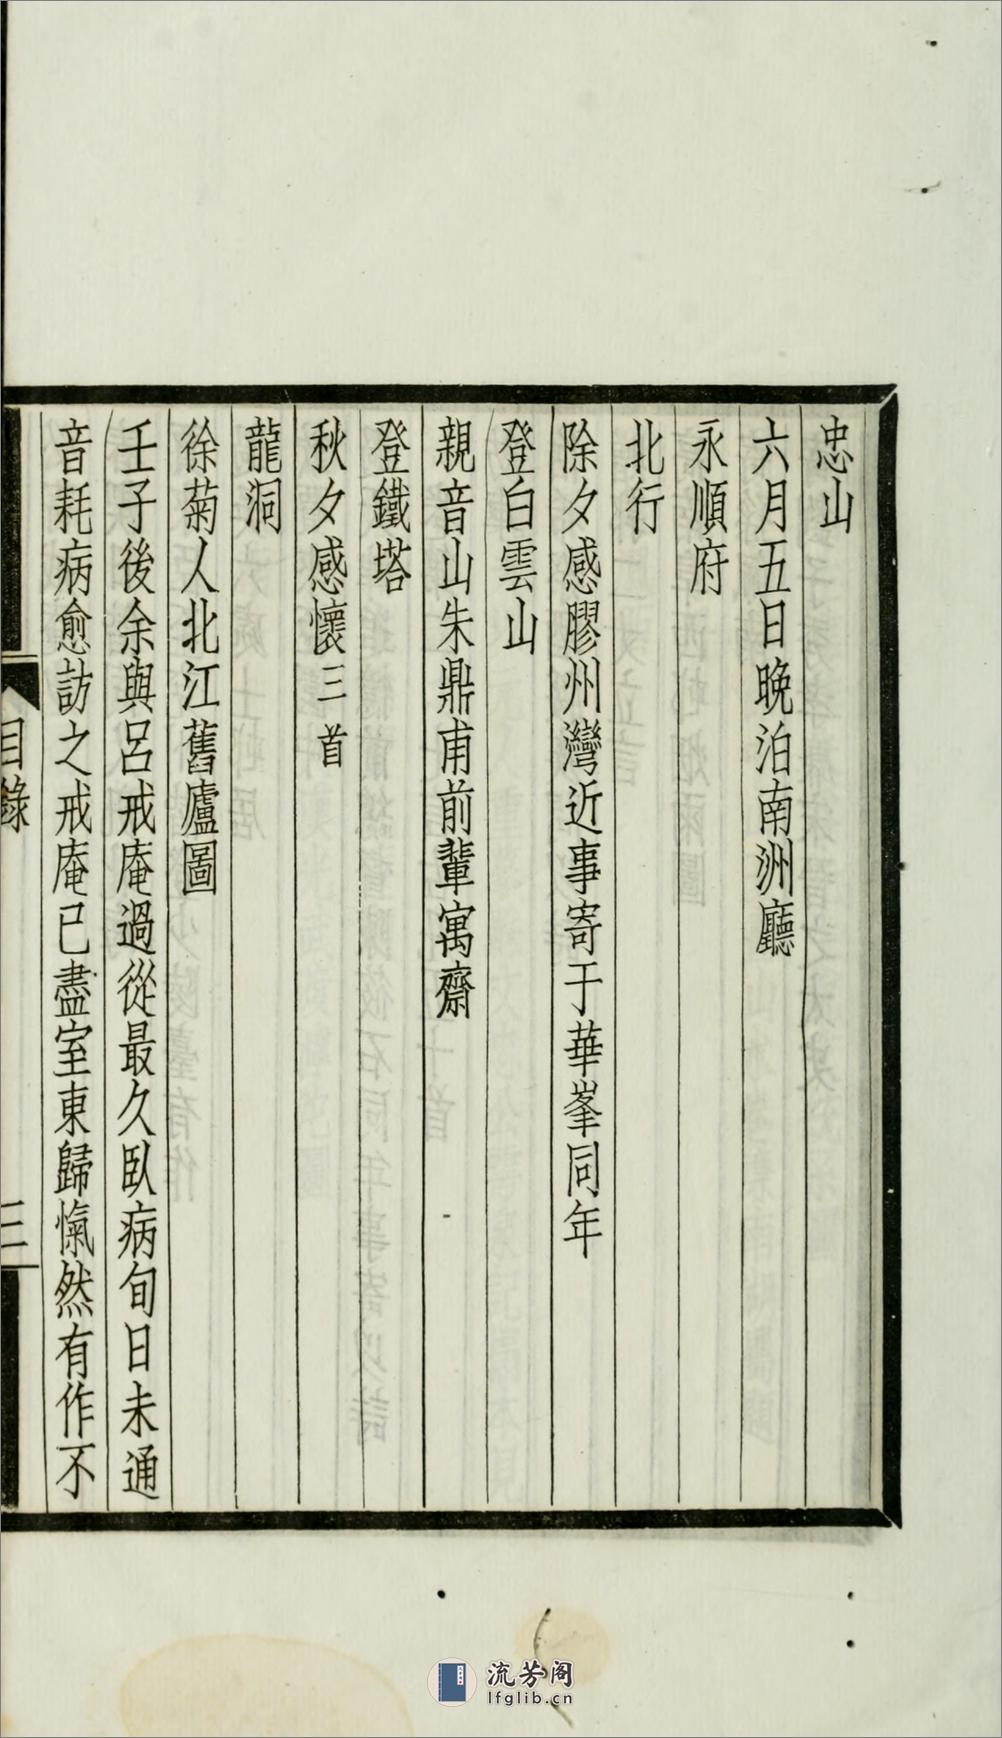 忠山
六月五日晚泊南洲廳
永順府
北行
除夕感膠州灣近事寄于華峯同年
登白雲山
親音山朱鼎甫前輩寓齋
登鐵塔
秋夕感懷三首
龍洞
徐菊人北江舊廬圖
壬子後余與呂戒庵過從最久臥病旬日未通
音耗病愈訪之戒庵已盡室東歸愾然有作不
目錄
三
流芳阁
lfglib.cn